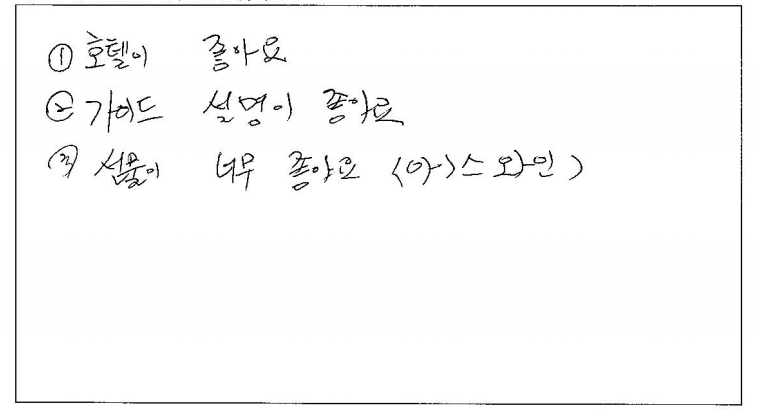 ① 호텔이 좋아요
② 가이드 설명이 좋아요
③ 선물이 너무 좋아요 (아이스와인)